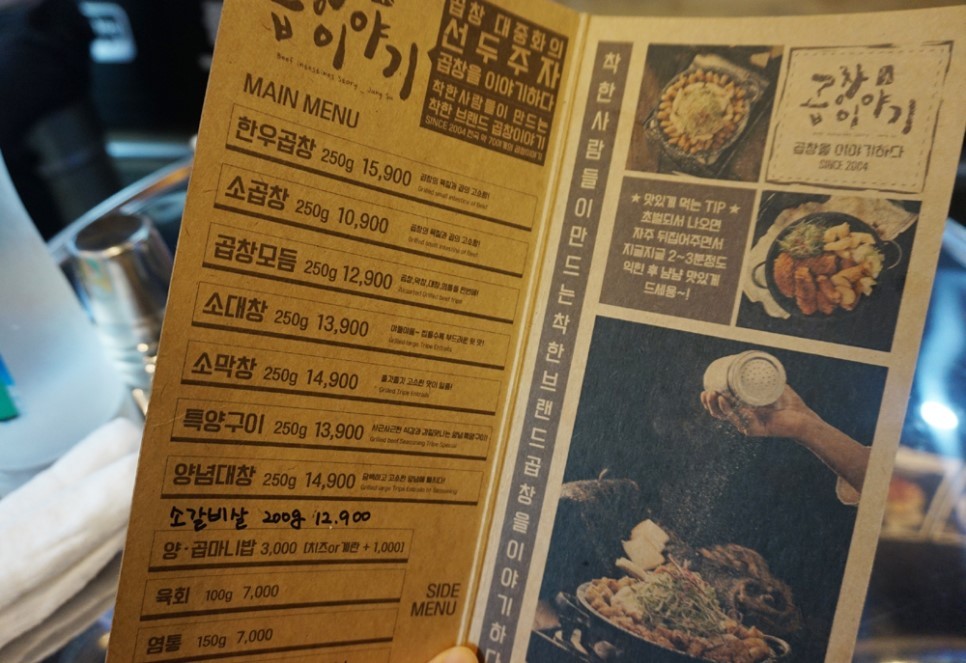 곱창
이야기
곱창 대중화의
선두주자
곱창을 이야기하다
착한사람들이 만드는
착한 브랜드 곱창이야기
MAIN MENU
한우곱창 250g 15,900
소곱창 250g 10,900
곱창모듬 250g 12,900
소대창 250g 13,900
소막창 250g 14,900
특양구이 250g 13,900
양념대창 250g 14,900
소갈비살 200g 12.900
양·곱마니밥 3,000 [치즈or계란 + 1,000]
육회 100g 7,000
염통 150g 7,000
SIDE
MENU
착한사람들이만드는착한브랜드곱창을이야기하다
곱창
이야기
곱창을 이야기하다
SINCE 2004
★ 맛있게 먹는 TIP ★
초벌되서 나오면
자주 뒤집어주면서
지글지글 2~3분정도
익힌 후 냠냠 맛있게
드세욤~!